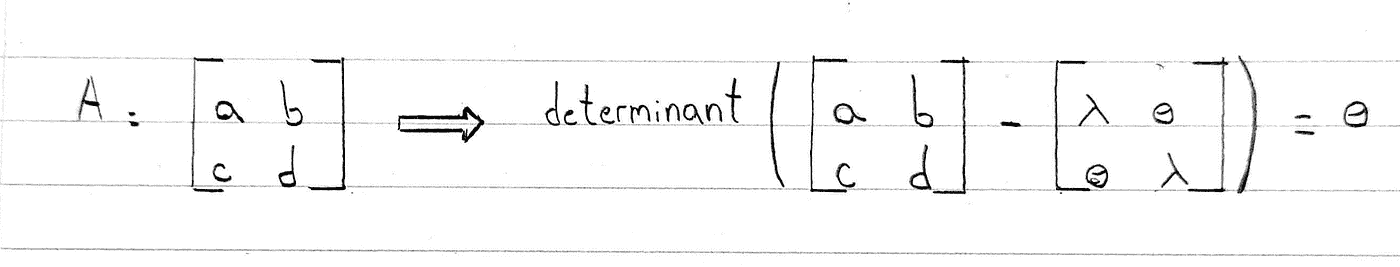 A : [a b; c d] ⟹ determinant ([a b; c d] - [λ θ; θ λ]) = θ